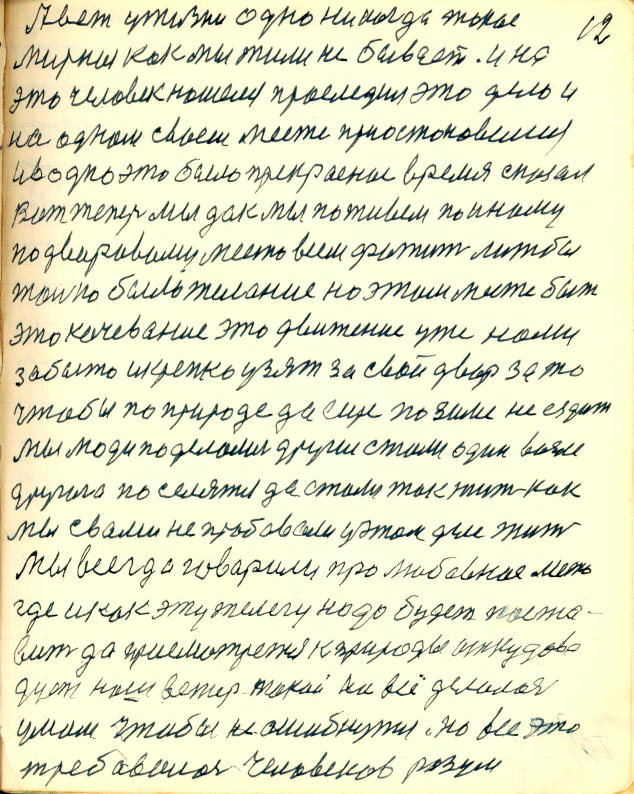 А вет у жизни одно никогда такое 12
мирных как мы жили не бывает. и на
это человек нашелся проследил это дело и
на одном своем месте приостоновился
и водно это было прекрасное время сказал
вот теперь мы да к мы поживем по иному
по дваровому место всем фатит лиш бы
токо было желание но этом месте быт
это качевание это движение уже нами
забыто и крепко узят за свой двор за то
чтобы по природе да еще по зиме не ездит
мы люди поделамя другие стали один возле
другога поселятся да стали так жит как
мы с вами не пробавали у этом деле жит
мы всегда говарили про любавное место
где и как эту телегу надо будет поста-
вит да присмотрется к природе откудова
дует наш ветер такой на всё делалоя
умом чтобы не ошибнутся. но все это
требавалоя человеков разум